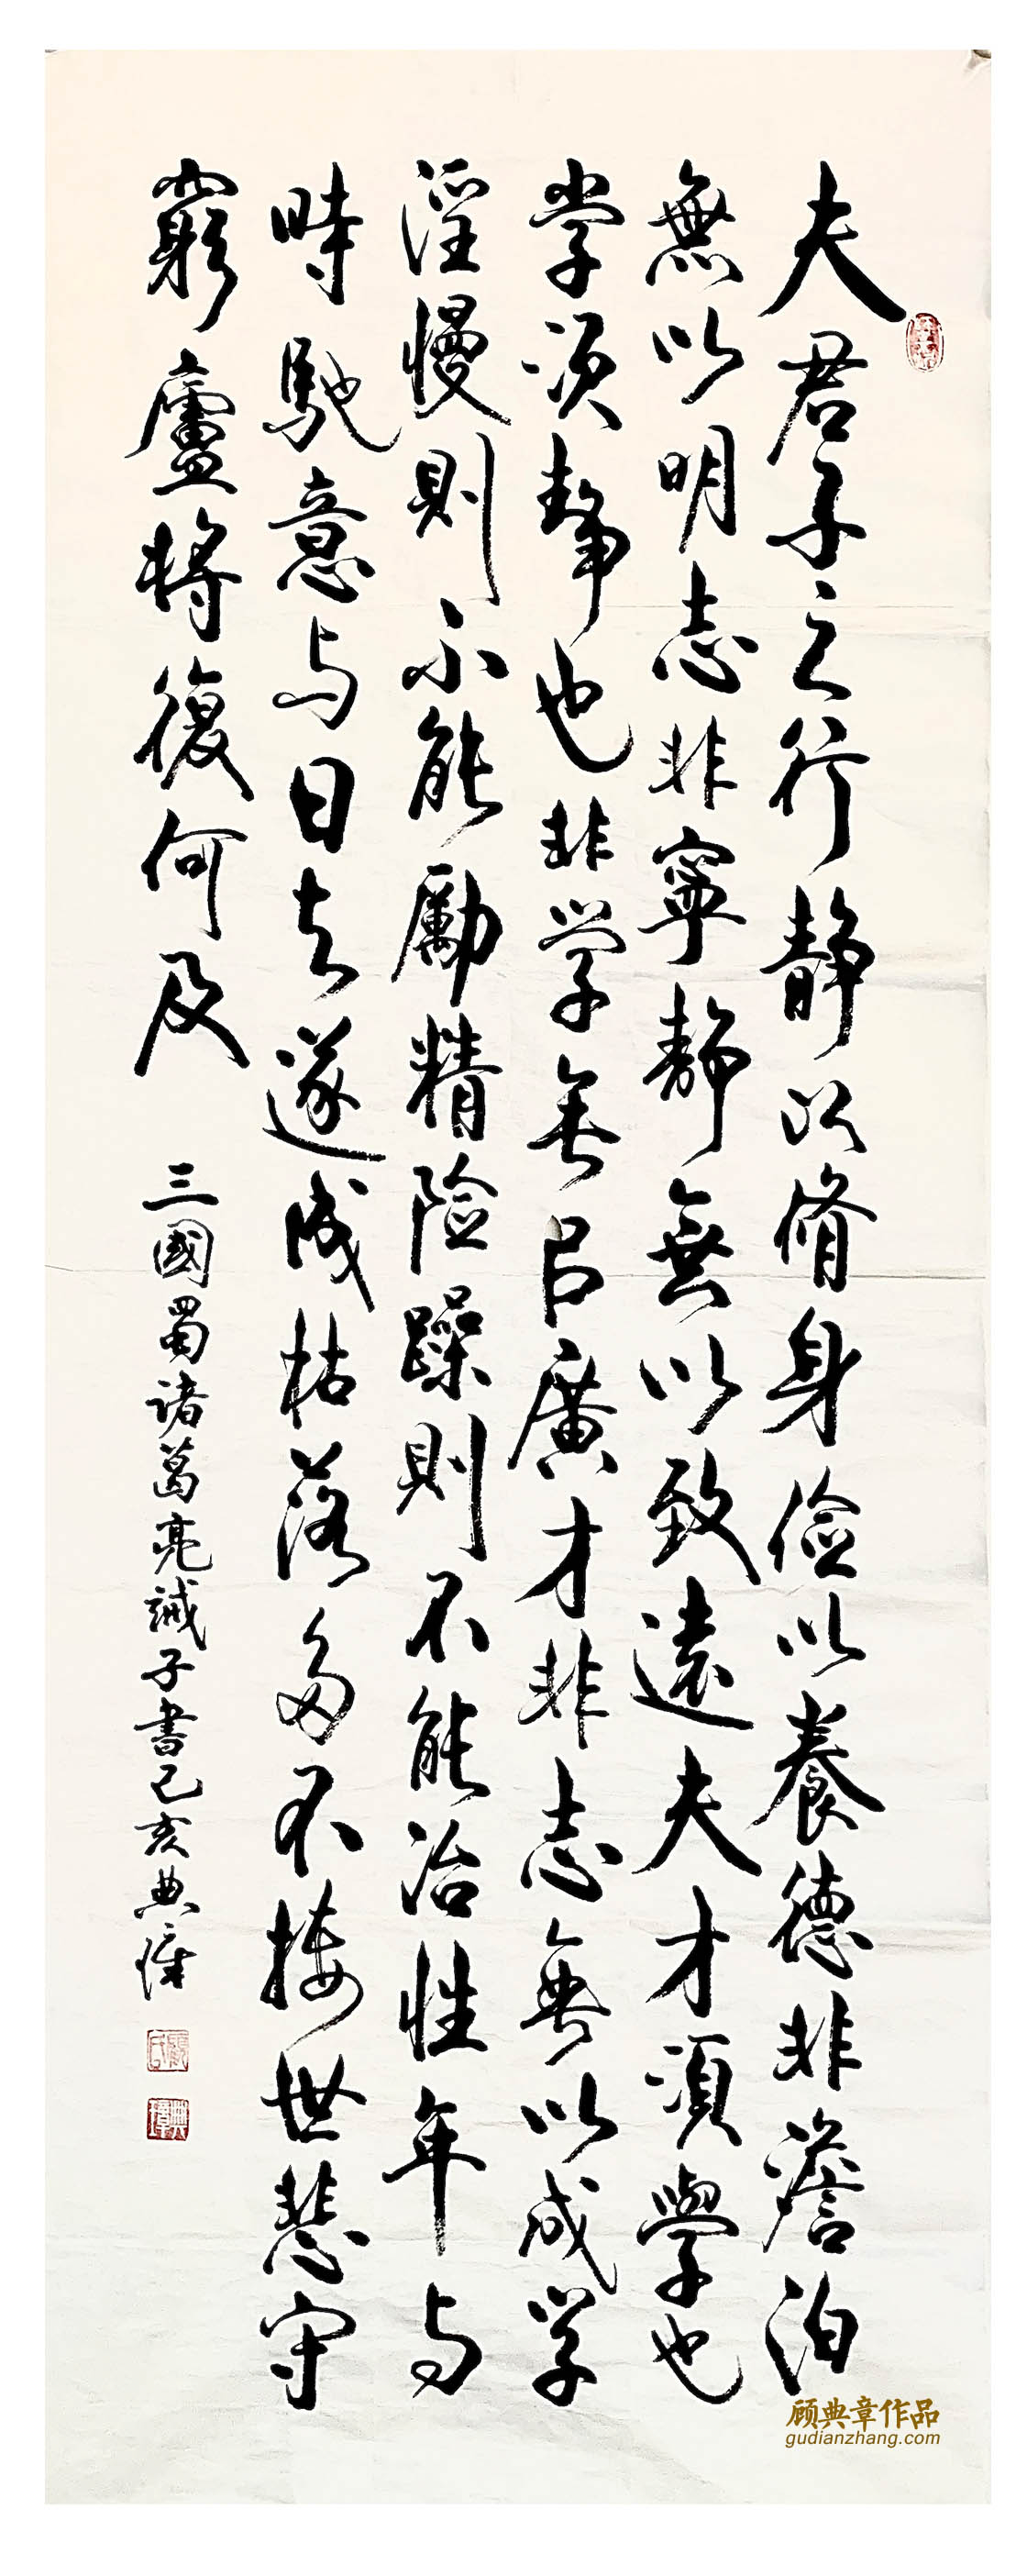 夫君子之行静以脩身俭以養德非澹泊
無以明志非寧靜無以致遠夫才須學也
学须静也非学無以廣才非志無以成学
淫慢則不能勵精险躁則不能冶性年与
時馳意与日去遂成枯落多不接世悲守
窮廬将復何及
三國蜀诸葛亮诫子書己亥典璋
顾典章作品
gudianzhang.com